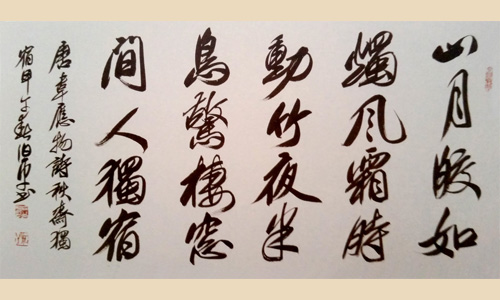 山月皎如
燭風霜時
動竹夜半
鳥驚棲窓
間人獨宿
唐韋應物詩秋齋獨
宿甲午春伯書